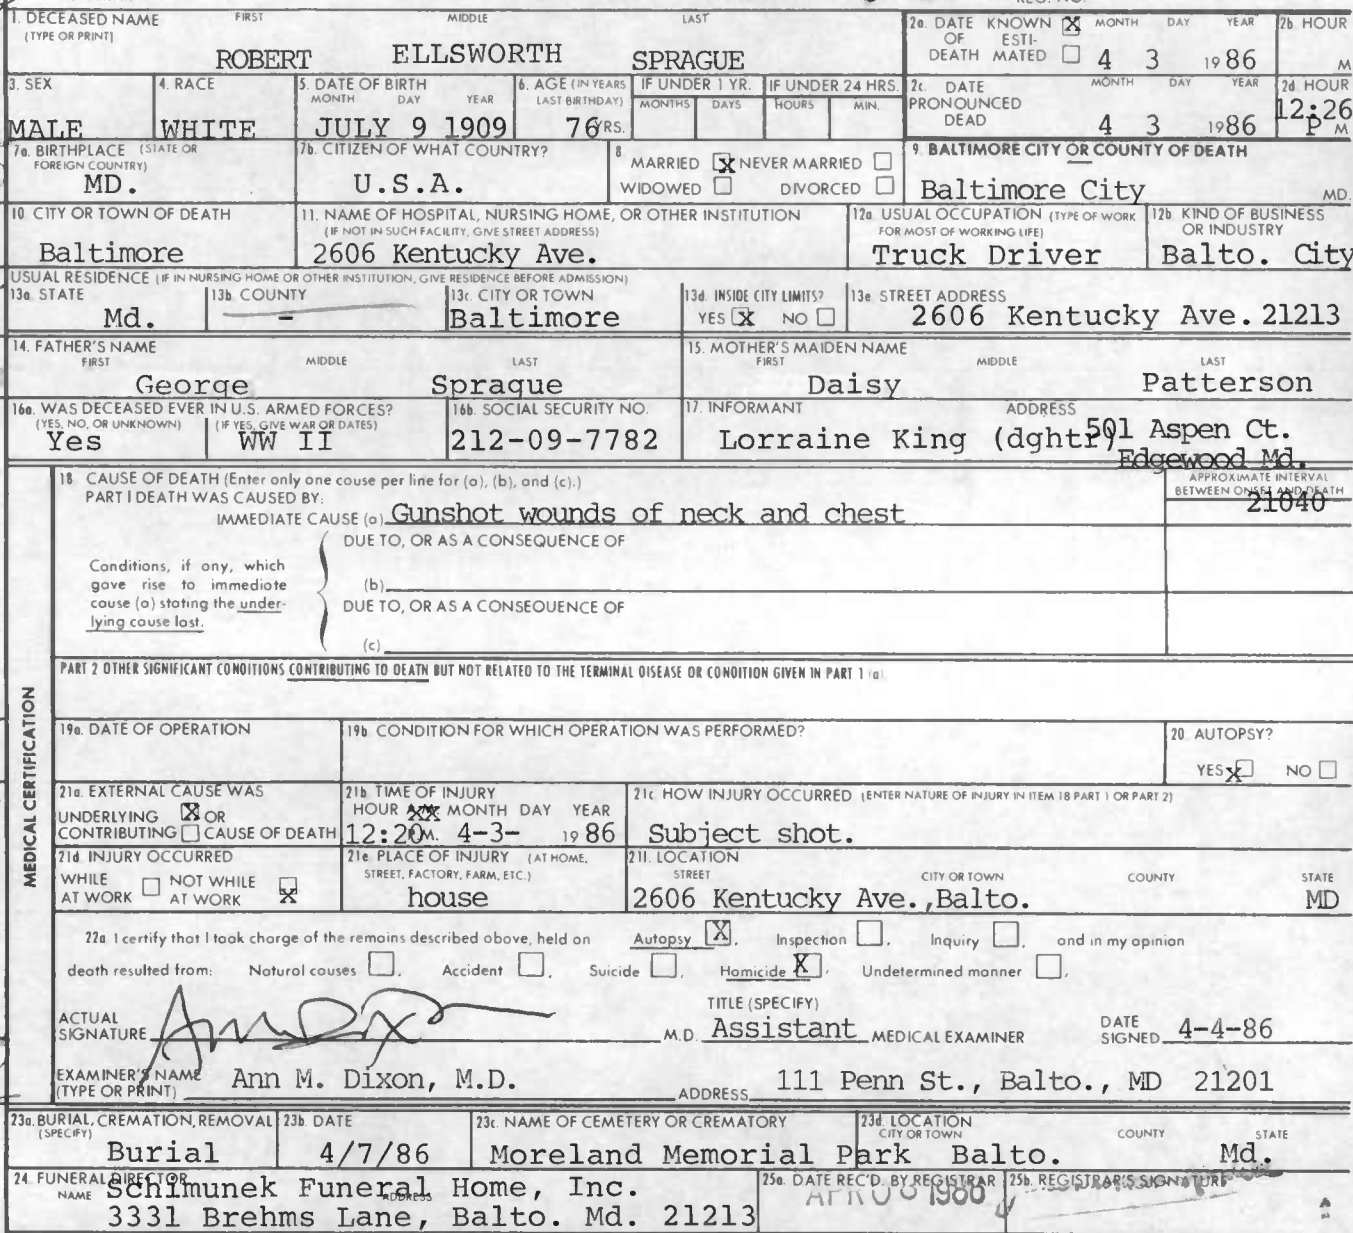 1. DECEASED NAME FIRST MIDDLE LAST
(TYPE OR PRINT)
ROBERT ELLSWORTH SPRAGUE
2a. DATE KNOWN X MONTH DAY YEAR
OF ESTI-
DEATH MATED 4 3 1986
2b. HOUR
M
3. SEX
MALE
4. RACE
WHITE
5. DATE OF BIRTH
MONTH DAY YEAR
JULY 9 1909
6. AGE (IN YEARS
LAST BIRTHDAY)
76 YRS.
IF UNDER 1 YR.
MONTHS DAYS
IF UNDER 24 HRS.
HOURS MIN.
2c. DATE MONTH DAY YEAR
PRONOUNCED
DEAD 4 3 1986
2d HOUR
12:26
P M
7a. BIRTHPLACE (STATE OR
FOREIGN COUNTRY)
MD.
7b. CITIZEN OF WHAT COUNTRY?
U.S.A.
8
MARRIED X NEVER MARRIED
WIDOWED DIVORCED
9. BALTIMORE CITY OR COUNTY OF DEATH
Baltimore City MD.
10. CITY OR TOWN OF DEATH
Baltimore
11. NAME OF HOSPITAL, NURSING HOME, OR OTHER INSTITUTION
(IF NOT IN SUCH FACILITY, GIVE STREET ADDRESS)
2606 Kentucky Ave.
12a. USUAL OCCUPATION (TYPE OF WORK
FOR MOST OF WORKING LIFE)
Truck Driver
12b. KIND OF BUSINESS
OR INDUSTRY
Balto. City
USUAL RESIDENCE (IF IN NURSING HOME OR OTHER INSTITUTION, GIVE RESIDENCE BEFORE ADMISSION)
13a. STATE
Md.
13b. COUNTY
-
13c. CITY OR TOWN
Baltimore
13d. INSIDE CITY LIMITS?
YES X NO
13e. STREET ADDRESS
2606 Kentucky Ave. 21213
14. FATHER'S NAME
FIRST MIDDLE LAST
George Sprague
15. MOTHER'S MAIDEN NAME
FIRST MIDDLE LAST
Daisy Patterson
16a. WAS DECEASED EVER IN U.S. ARMED FORCES?
(YES, NO, OR UNKNOWN) (IF YES, GIVE WAR OR DATES)
Yes WW II
16b. SOCIAL SECURITY NO.
212-09-7782
17. INFORMANT ADDRESS
Lorraine King (dghtr) 501 Aspen Ct.
Edgewood Md.
21040
MEDICAL CERTIFICATION
18. CAUSE OF DEATH (Enter only one cause per line for (a), (b), and (c).)
PART I DEATH WAS CAUSED BY:
APPROXIMATE INTERVAL
BETWEEN ONSET AND DEATH
IMMEDIATE CAUSE (a) Gunshot wounds of neck and chest
DUE TO, OR AS A CONSEQUENCE OF
Conditions, if any, which
gave rise to immediate
cause (a) stating the under-
lying cause last.
(b)
DUE TO, OR AS A CONSEQUENCE OF
(c)
PART 2 OTHER SIGNIFICANT CONDITIONS CONTRIBUTING TO DEATH BUT NOT RELATED TO THE TERMINAL DISEASE OR CONDITION GIVEN IN PART 1 (a)
19a. DATE OF OPERATION
19b. CONDITION FOR WHICH OPERATION WAS PERFORMED?
20. AUTOPSY?
YES X NO
21a. EXTERNAL CAUSE WAS
UNDERLYING X OR
CONTRIBUTING CAUSE OF DEATH
21b. TIME OF INJURY
HOUR MONTH DAY YEAR
12:20 P.M. 4-3- 1986
21c. HOW INJURY OCCURRED (ENTER NATURE OF INJURY IN ITEM 18 PART 1 OR PART 2)
Subject shot.
21d. INJURY OCCURRED
WHILE NOT WHILE
AT WORK AT WORK X
21e. PLACE OF INJURY (AT HOME,
STREET, FACTORY, FARM, ETC.)
house
21f. LOCATION
STREET CITY OR TOWN COUNTY STATE
2606 Kentucky Ave., Balto. MD
22a. I certify that I took charge of the remains described above, held on Autopsy X, Inspection, Inquiry, and in my opinion
death resulted from: Natural causes, Accident, Suicide, Homicide X, Undetermined manner,
ACTUAL
SIGNATURE
TITLE (SPECIFY)
M.D. Assistant MEDICAL EXAMINER
DATE
SIGNED 4-4-86
EXAMINER'S NAME
(TYPE OR PRINT) Ann M. Dixon, M.D.
ADDRESS 111 Penn St., Balto., MD 21201
23a. BURIAL, CREMATION, REMOVAL
(SPECIFY)
Burial
23b. DATE
4/7/86
23c. NAME OF CEMETERY OR CREMATORY
Moreland Memorial Park
23d. LOCATION
CITY OR TOWN COUNTY STATE
Balto. Md.
24. FUNERAL DIRECTOR
NAME Schimunek Funeral Home, Inc.
ADDRESS
3331 Brehms Lane, Balto. Md. 21213
25a. DATE REC'D. BY REGISTRAR
1986
25b. REGISTRAR'S SIGNATURE